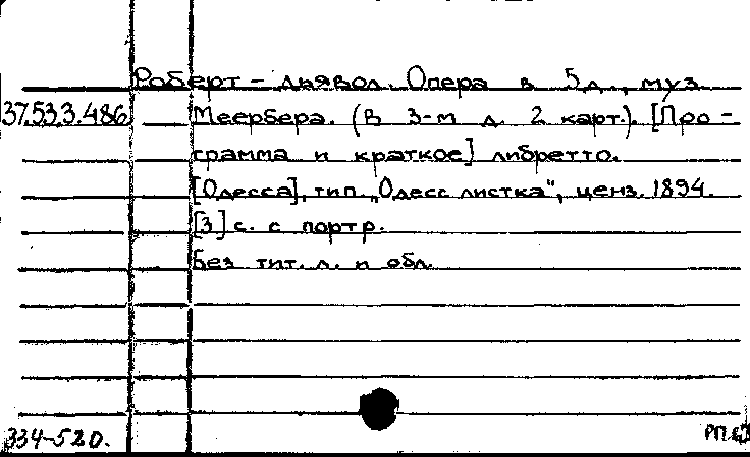 Роберт - дьявол. Опера в 5д., муз.
37.53.3.486 Меербера. (В 3-м д. 2 карт.). [Про-
грамма и краткое] либретто.
[Одесса], тип. "Одесс листка", ценз. 1894.
[3] с. с портр.
Без тит. л. и обл.
334-520.